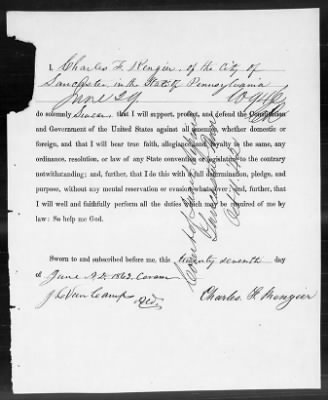 I, Charles F. Rengier, of the City of
Lancaster, in the State of Pennsylvania
June 29
do solemnly swear, that I will support, protect, and defend the Constitution
and Government of the United States against all enemies, whether domestic
or foreign, and that I will bear true faith, allegiance, and loyalty to the same, any
ordinance, resolution, or law of any State convention or legislature to the contrary
notwithstanding; and, further, that I do this with a full determination, pledge, and
purpose, without any mental reservation or evasion whatsoever; and, further, that
I will well and faithfully perform all the duties which may be required of me by
law: So help me God.
Sworn to and subscribed before me, this twenty seventh day
of June A.D. 1862
Charles F. Rengier